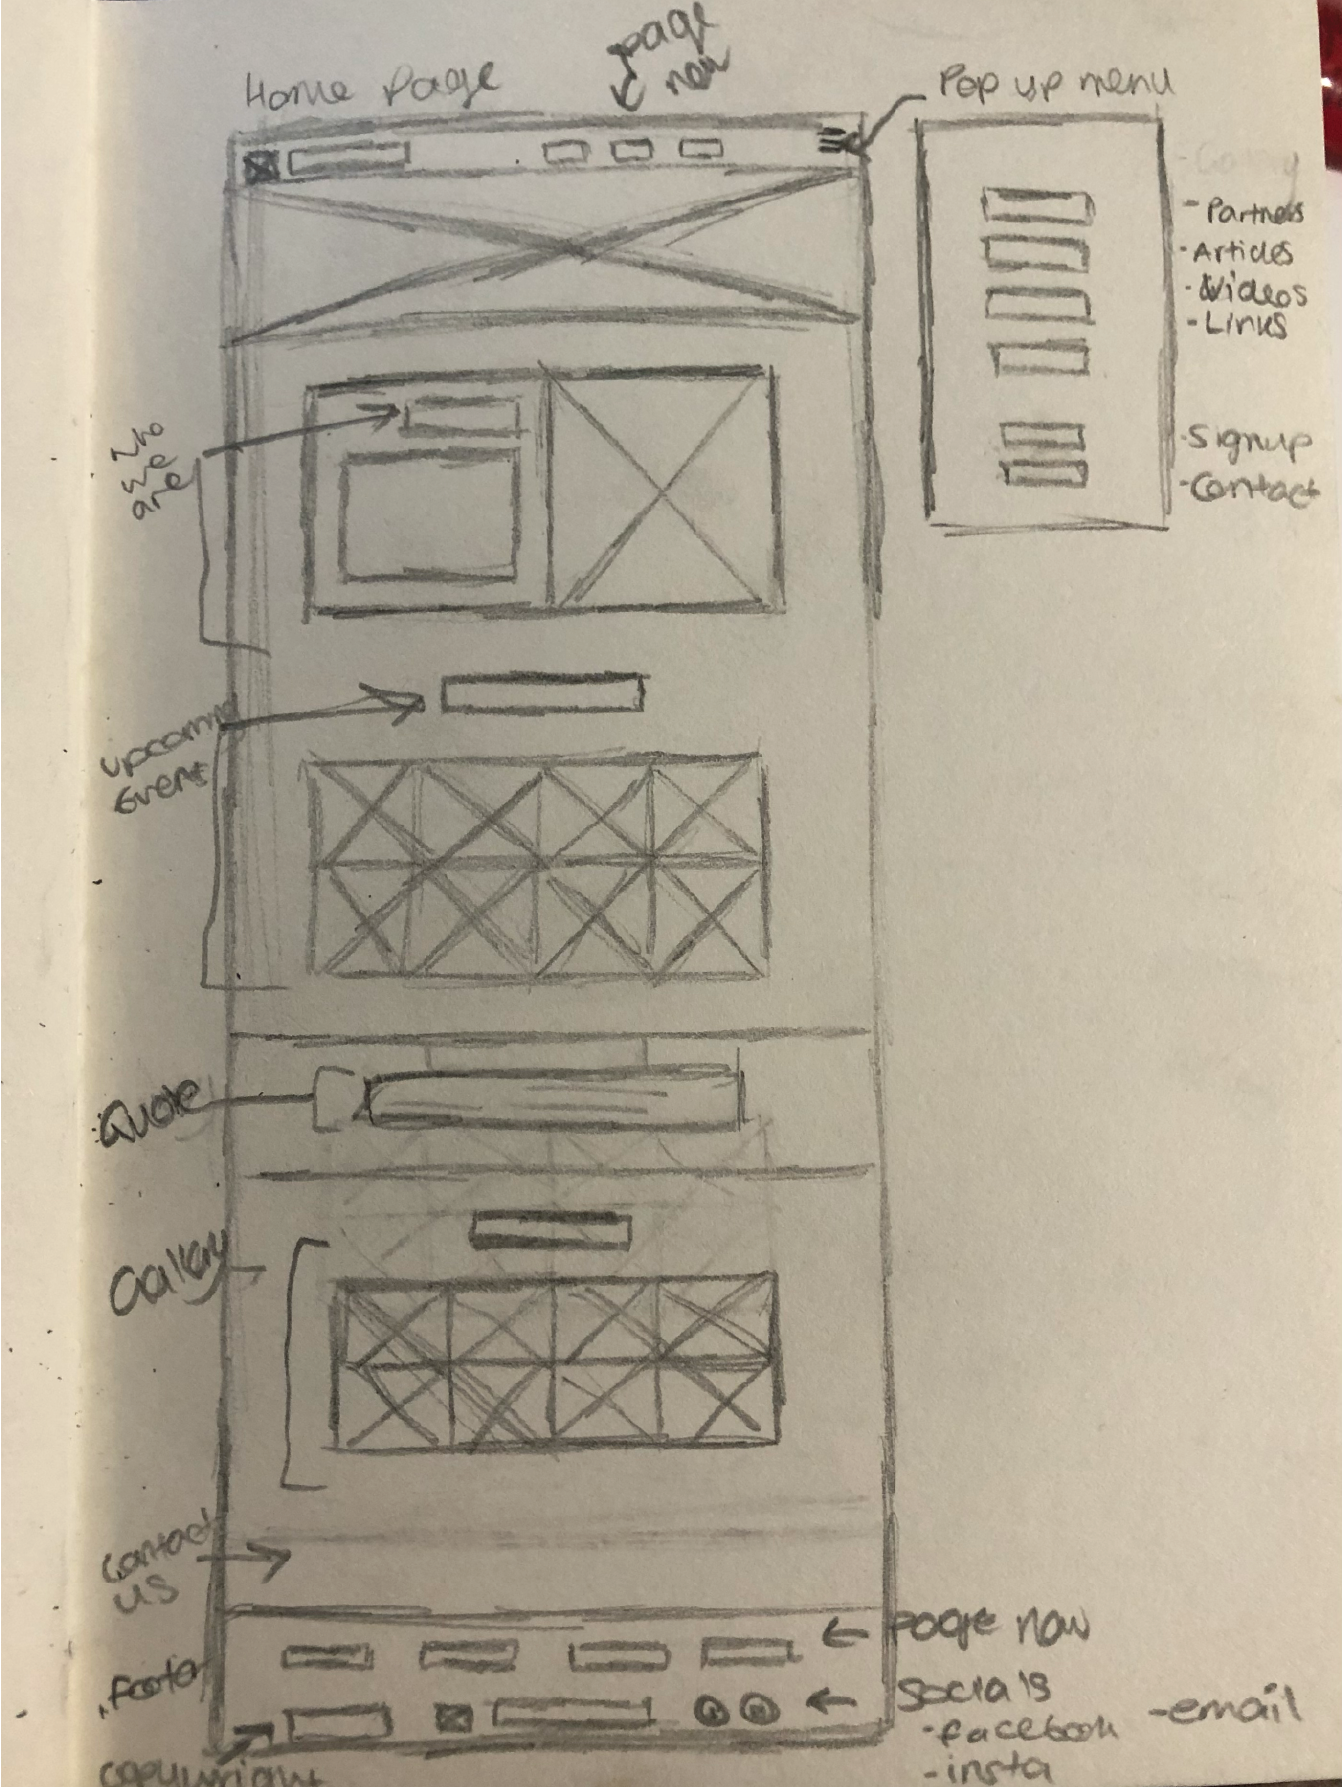 Home Page
page
nav
Pop up menu
- Partners
- Articles
- Videos
- Links
- Signup
- Contact
Who
we
are
upcoming
Event
Quote
Gallery
Contact
US
Page nav
Footer
Socials
- facebook
- insta
- email
copywright